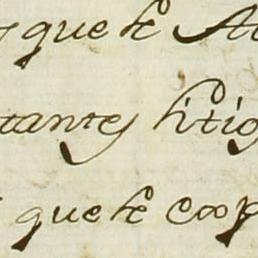 que se
tantes litig
que se exp